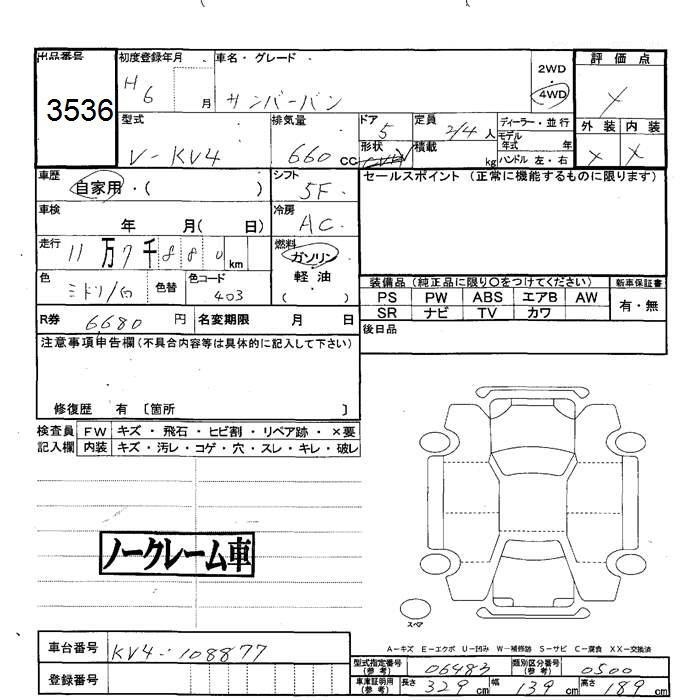 出品番号 初度登録年月 車名・グレード 評価点
3536 H6 月 サンバーバン 2WD・4WD
型式 排気量 ドア 定員 ディーラー・並行 外装 内装
V-KV4 660 CC 5 2/4人 モデル年式 年 X X
形状 積載 kg ハンドル 左・右
車歴 自家用・( ) シフト 5F セールスポイント (正常に機能するものに限ります)
車検 年 月( 日) 冷房 AC
走行 11万7千880km 燃料 ガソリン 軽油 ( )
色 ミドリ/白 色替 色コード 403
装備品 (純正品に限り○をつけてください) 新車保証書
PS PW ABS エアB AW 有・無
SR ナビ TV カワ
R券 6,680円 名変期限 月 日 後日品
注意事項申告欄(不具合内容等は具体的に記入して下さい)
修復歴 有 [箇所 ]
検査員記入欄 FW キズ・飛石・ヒビ割・リペア跡・×要
内装 キズ・汚レ・コゲ・穴・スレ・キレ・破レ
ノークレーム車
スペア
A-キズ E-エクボ U-凹み W-補修跡 S-サビ C-腐食 XX-交換済
車台番号 KV4-108877
型式指定番号(参考) 06483 類別区分番号(参考) 0500
登録番号 車庫証明用(参考) 長さ 329cm 幅 139cm 高さ 189cm